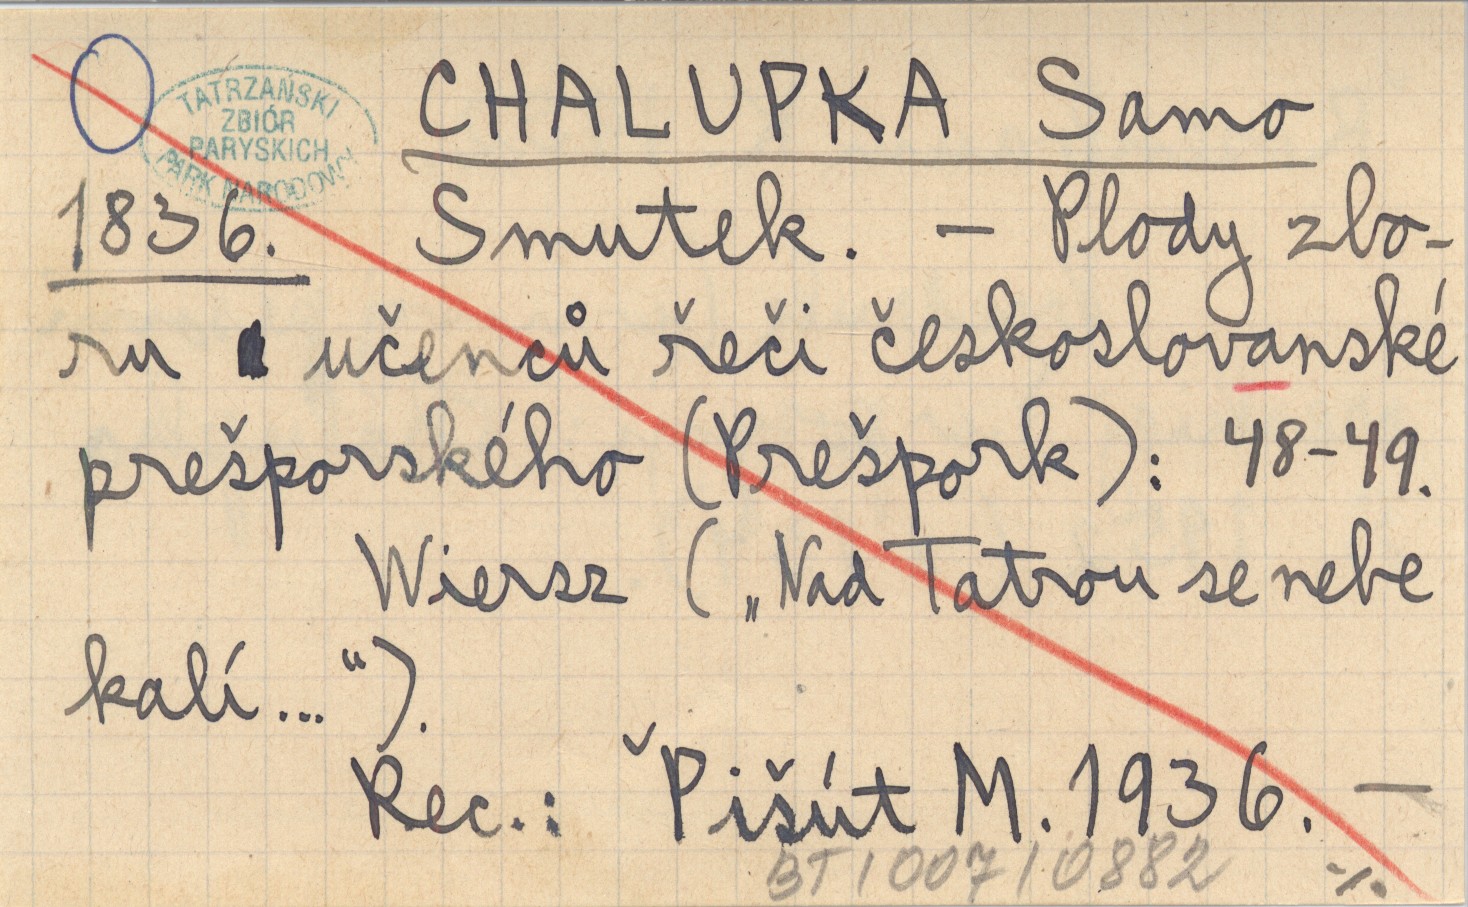 TATRZAŃSKI
ZBIÓR
PARYSKICH
PARK NARODOWY
CHALUPKA Samo
1836. Smutek. – Plody zbo-
ru učenců řeči českoslovanské
prešporského (Prešpork): 48-49.
Wiersz („Nad Tatrou se nebe
kalí...“).
Rec.: ˇPišút M. 1936. —
BT/007/0882 ·/.